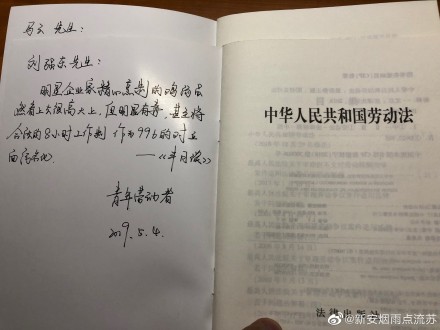 马云先生：
刘强东先生：
明星企业家精心烹制的鸡汤虽
然看上去很高大上，但明显有毒，甚至将
合法的8小时工作制作为996的对立
面信名化。
——《半月谈》
青年劳动者
2019.5.4.
中华人民共和国劳动法
法律出版社
@新安烟雨点流苏